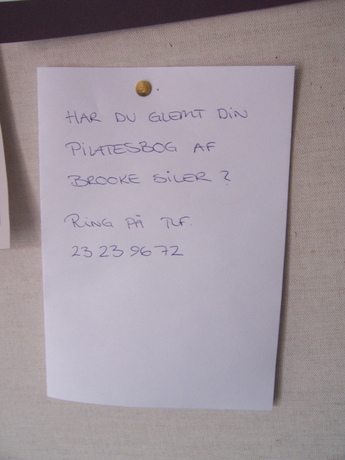 HAR DU GLEMT DIN
PILATESBOG AF
BROOKE SILER?
RING PÅ TLF.
23 23 96 72